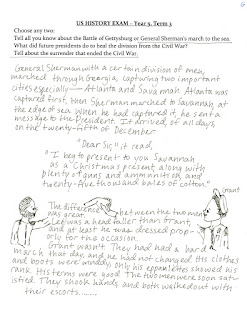 US HISTORY EXAM – Year 5, Term 3
Choose any two:
Tell all you know about the Battle of Gettysburg or General Sherman's march to the sea.
What did future presidents do to heal the division from the Civil War?
Tell about the surrender that ended the Civil War.
General Sherman with a certain division of men,
marched through Georgia, capturing two important
cities especially — Atlanta and Savannah. Atlanta was
captured first, then Sherman marched to Savannah, at
the edge of sea. When he had captured it, he sent a
message to the President. It arrived, of all days,
on the twenty-fifth of December.
"Dear Sir," it read,
"I beg to present to you Savannah
as a Christmas present, along with
plenty of guns and ammunition, and
twenty-five thousand bales of cotton."
Grant
The difference between the two men
was great.
Lee was a head taller than Grant,
and at least he was dressed prop-
erly for the occasion.
Grant wasn't. They had had a hard
march that day, and he had not changed. His clothes
and boots were muddy, only his eppaulettes showed his
rank. His terms were good. The two men were soon satis-
fied. They shook hands and both went away with
their escorts.......